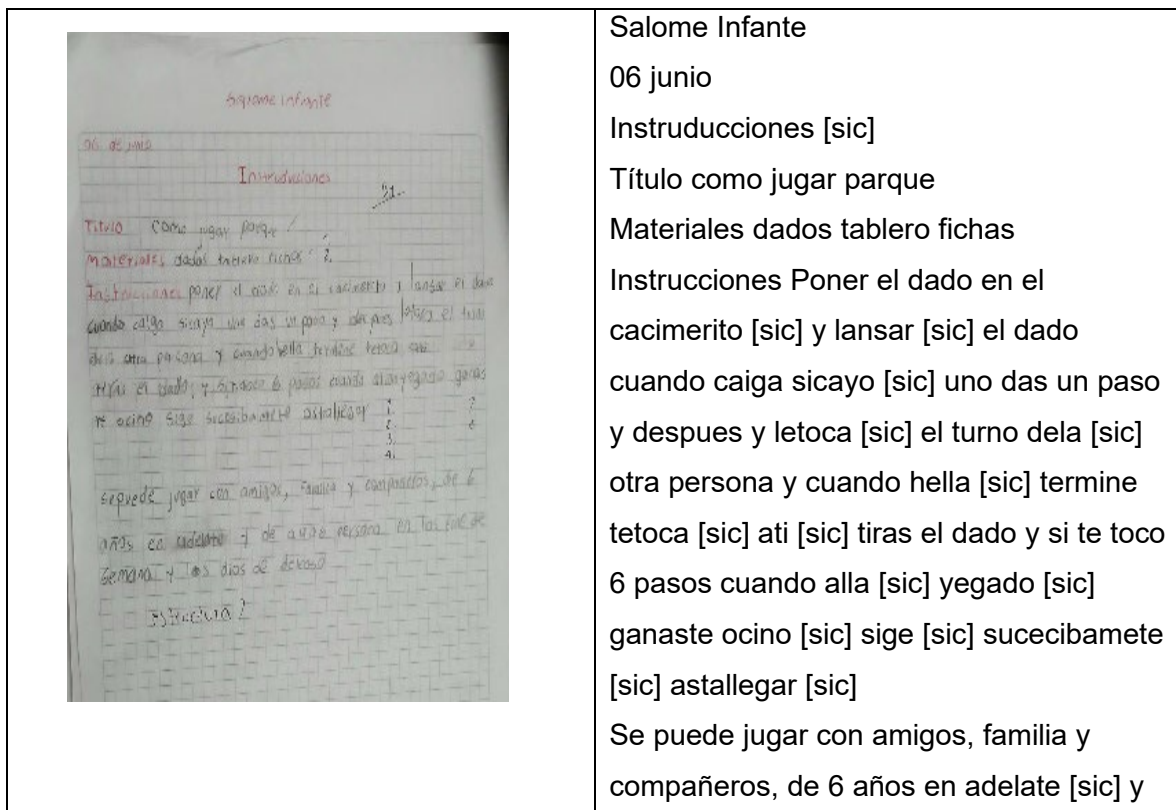 Salome infante
06 de junio
Instruduciones
Titulo como jugar parque
Materiales dados tablero fichas
Instrucciones poner el dado en el cacimerito y lansar el dado
cuando caiga sicayo uno das un paso y despues letoca el turno
dela otra persona y cuando hella termine tetoca
tiras el dado y 6 pasos cuando alla yegado ganas
te ocino sige astallegar
1.
2.
3.
4.
sepuede jugar con amigos, familia y compañeros, de 6
años en adelate y de persona en los fine de
semana y los dias de
Estructura?
Salome Infante
06 junio
Instruducciones [sic]
Título como jugar parque
Materiales dados tablero fichas
Instrucciones Poner el dado en el
cacimerito [sic] y lansar [sic] el dado
cuando caiga sicayo [sic] uno das un paso
y despues y letoca [sic] el turno dela [sic]
otra persona y cuando hella [sic] termine
tetoca [sic] ati [sic] tiras el dado y si te toco
6 pasos cuando alla [sic] yegado [sic]
ganaste ocino [sic] sige [sic] sucecibamete
[sic] astallegar [sic]
Se puede jugar con amigos, familia y
compañeros, de 6 años en adelate [sic] y